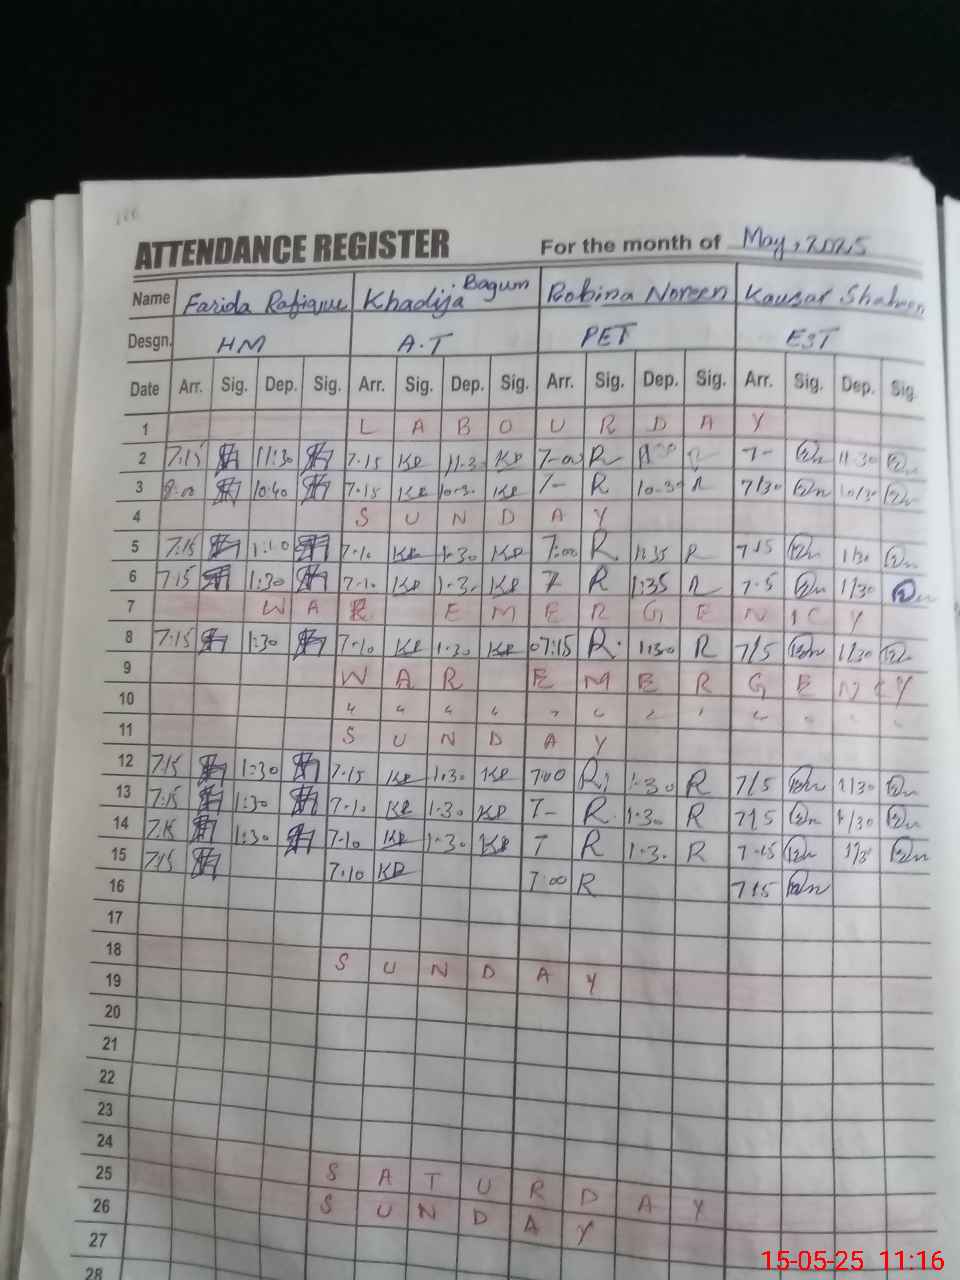 ATTENDANCE REGISTER For the month of May, 2025
Name Farida Rafique Khadija Bagum Robina Noreen Kausar Shaheen
Desgn. HM A.T PET EST
Date Arr. Sig. Dep. Sig. Arr. Sig. Dep. Sig. Arr. Sig. Dep. Sig. Arr. Sig. Dep. Sig.
1 L A B O U R D A Y
2 7:15 11:30 7.15 KB 11.3. KB 7-00 R R 7- 11.30
3 8:00 10:40 7.15 KB 10.3. KB 7- R 10.30 R 7/30 10/30
4 S U N D A Y
5 7:15 1:10 7.10 KB 1.30 KB 7:00 R 1:35 R 7.15 1/30
6 7:15 1:30 7.10 KB 1.3. KB 7 R 1:35 R 7.5 1/30
7 W A R E M E R G E N C Y
8 7:15 1:30 7.10 KB 1.30 KB 07:15 R. 1:30 R 7/5 1/30
9 W A R E M E R G E N C Y
10 " " " "
11 S U N D A Y
12 7:15 1:30 7.15 KB 1.30 KB 7:00 R 1.30 R 7/5 1/30
13 7:15 1:30 7.10 KB 1.30 KB 7- R 1.30 R 715 1/30
14 7:15 1:30 7.10 KB 1.30 KB 7 R 1.3. R 7.15 1/3
15 7:15 7.10 KB 7:00 R 715
16
17
18 S U N D A Y
19
20
21
22
23
24
25 S A T U R D A Y
26 S U N D A Y
27
28
15-05-25 11:16